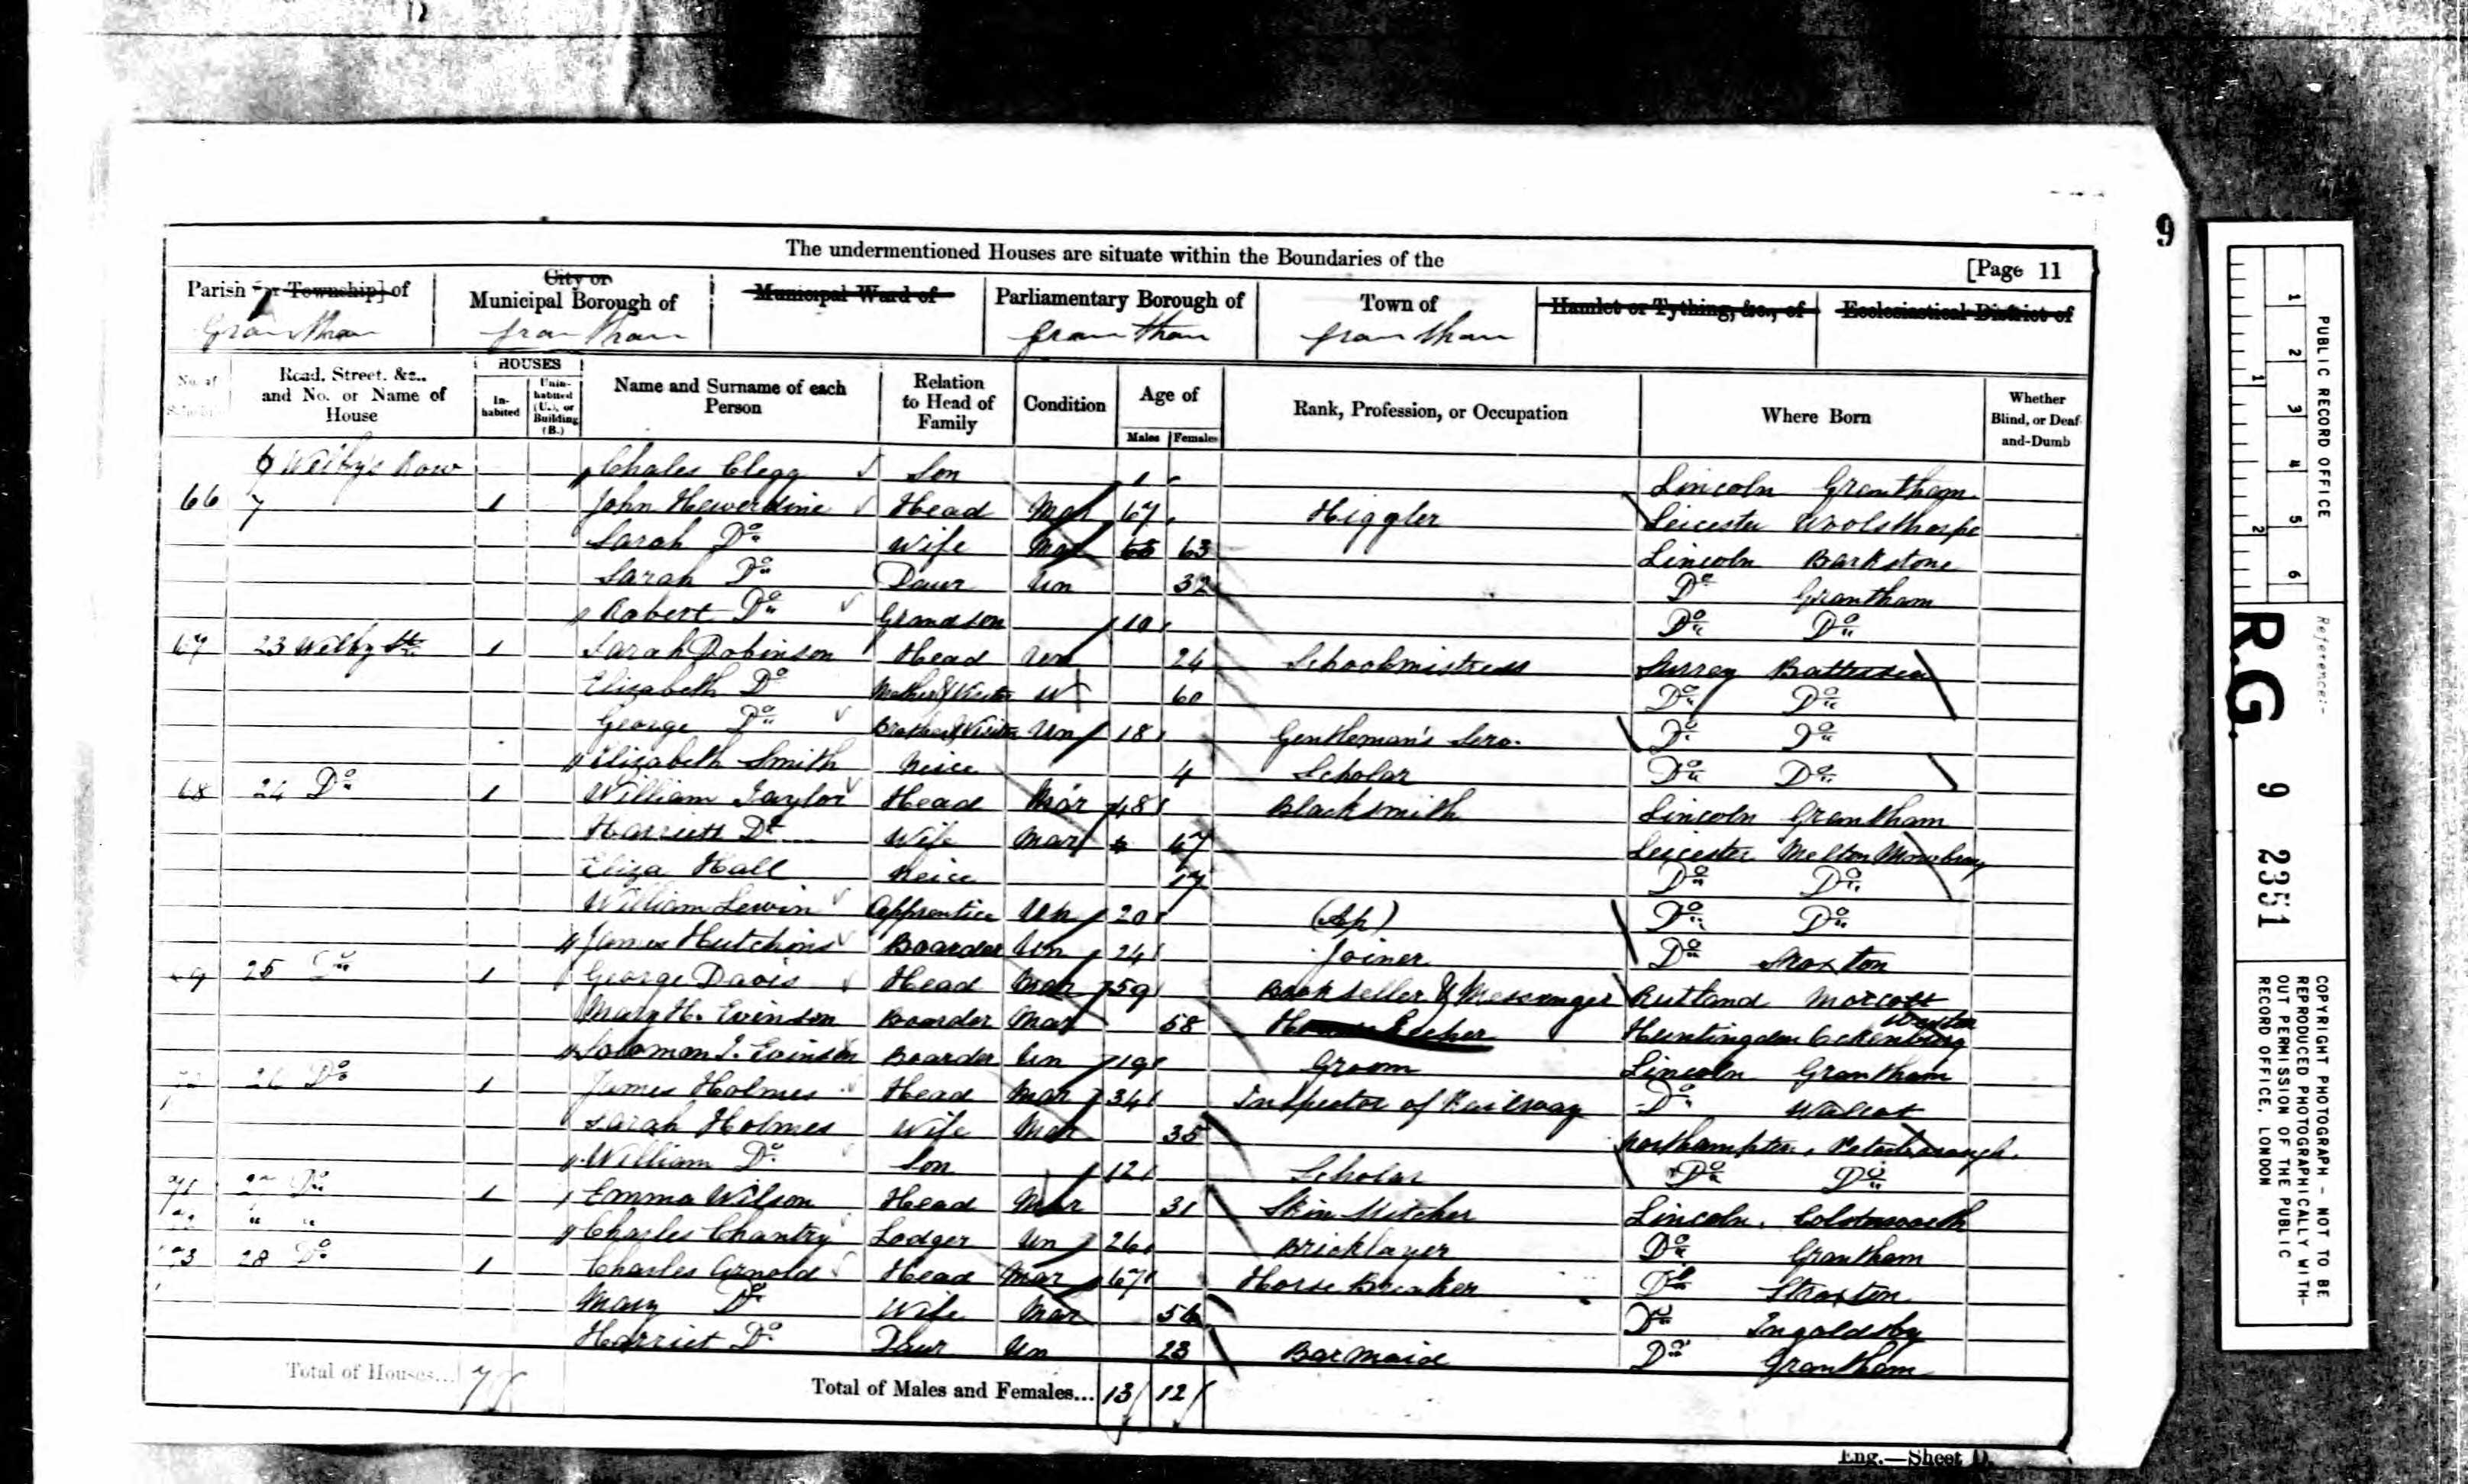 9
The undermentioned Houses are situate within the Boundaries of the
[Page 11
Parish [or Township] of
City or Municipal Borough of
Municipal Ward of
Parliamentary Borough of
Town of
Hamlet or Tything, &c., of
Ecclesiastical District of
Grantham Grantham Grantham Grantham
No. of Schedule
Road, Street, &c., and No. or Name of House
HOUSES
In-habited
Unin-habited (U.), or Building (B.)
Name and Surname of each Person
Relation to Head of Family
Condition
Age of
Males Females
Rank, Profession, or Occupation
Where Born
Whether Blind, or Deaf-and-Dumb
6 Welby's Row Chales Clegg Son 1 Lincoln Grantham
66 7 1 John Hewerdine Head Mar 67 Higgler Leicester Woolsthorpe
Sarah Do Wife Mar 63 Lincoln Barkstone
Sarah Do Daur Un 32 Do Grantham
Robert Do Grandson 10 Do Do
67 23 Welby St 1 Sarah Robinson Head Un 24 Schoolmistress Surrey Battersea
Elizabeth Do Mother & Visitor W 60 Do Do
George Do Brother & Visitor Un 18 Gentleman's Serv. Do Do
Elizabeth Smith Neice 4 Scholar Do Do
68 24 Do 1 William Taylor Head Mar 48 Blacksmith Lincoln Grantham
Harriett Do Wife Mar 47 Leicester Melton Mowbray
Eliza Hall Neice 17 Do Do
William Lewin Apprentice Un 20 (Ap) Do Do
James Hutchins Boarder Un 24 Joiner Do Stroxton
69 25 Do 1 George Davis Head Mar 59 Bookseller & Messenger Rutland Morcott
Mary H. Evinson Boarder Mar 58 Huntingdon
Solomon J. Evinson Boarder Un 19 Groom Lincoln Grantham
70 26 Do 1 James Holmes Head Mar 34 Inspector of Railway Do Walcot
Sarah Holmes Wife Mar 35 Northampton, Peterborough
William Do Son 12 Scholar Do Do
71 27 Do 1 Emma Wilson Head Mar 31 Skin Stitcher Lincoln,
72 " " Charles Chantry Lodger Un 26 Bricklayer Do Grantham
73 28 Do 1 Charles Arnold Head Mar 67 Horse Breaker Do Stroxton
Mary Do Wife Mar 56 Do Ingoldsby
Harriet Do Daur Un 23 Barmaid Do Grantham
Total of Houses... 7
Total of Males and Females... 13 12
Eng.—Sheet D.
PUBLIC RECORD OFFICE
1 2 3 4 5 6
1 2
Reference:-
R.G. 9 2351
COPYRIGHT PHOTOGRAPH - NOT TO BE
REPRODUCED PHOTOGRAPHICALLY WITH-
OUT PERMISSION OF THE PUBLIC
RECORD OFFICE, LONDON